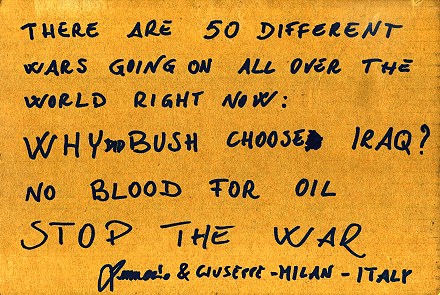 THERE ARE 50 DIFFERENT
WARS GOING ON ALL OVER THE
WORLD RIGHT NOW:
WHY DID BUSH CHOOSE IRAQ?
NO BLOOD FOR OIL
STOP THE WAR
& GIUSEPPE - MILAN - ITALY